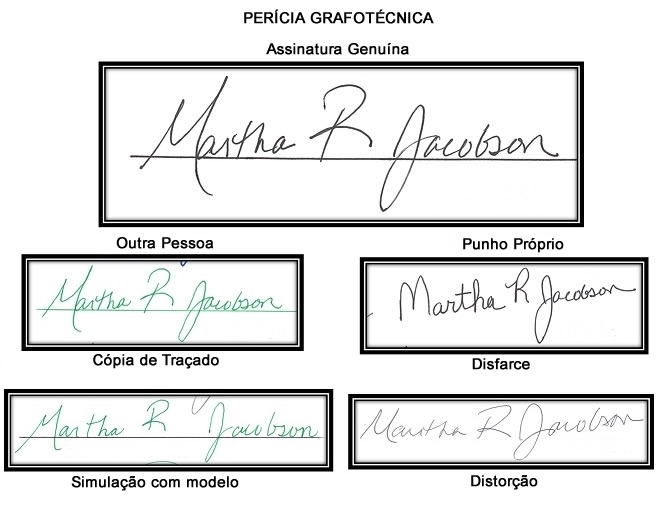 PERÍCIA GRAFOTÉCNICA
Assinatura Genuína
Martha R Jacobson
Outra Pessoa
Punho Próprio
Martha R Jacobson
Martha R Jacobson
Cópia de Traçado
Disfarce
Martha R Jacobson
Martha R Jacobson
Simulação com modelo
Distorção